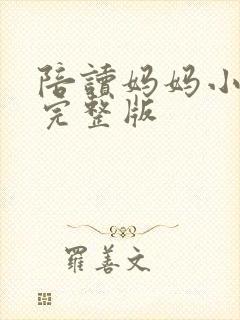 陪讀妈妈小
完整版
羅善文